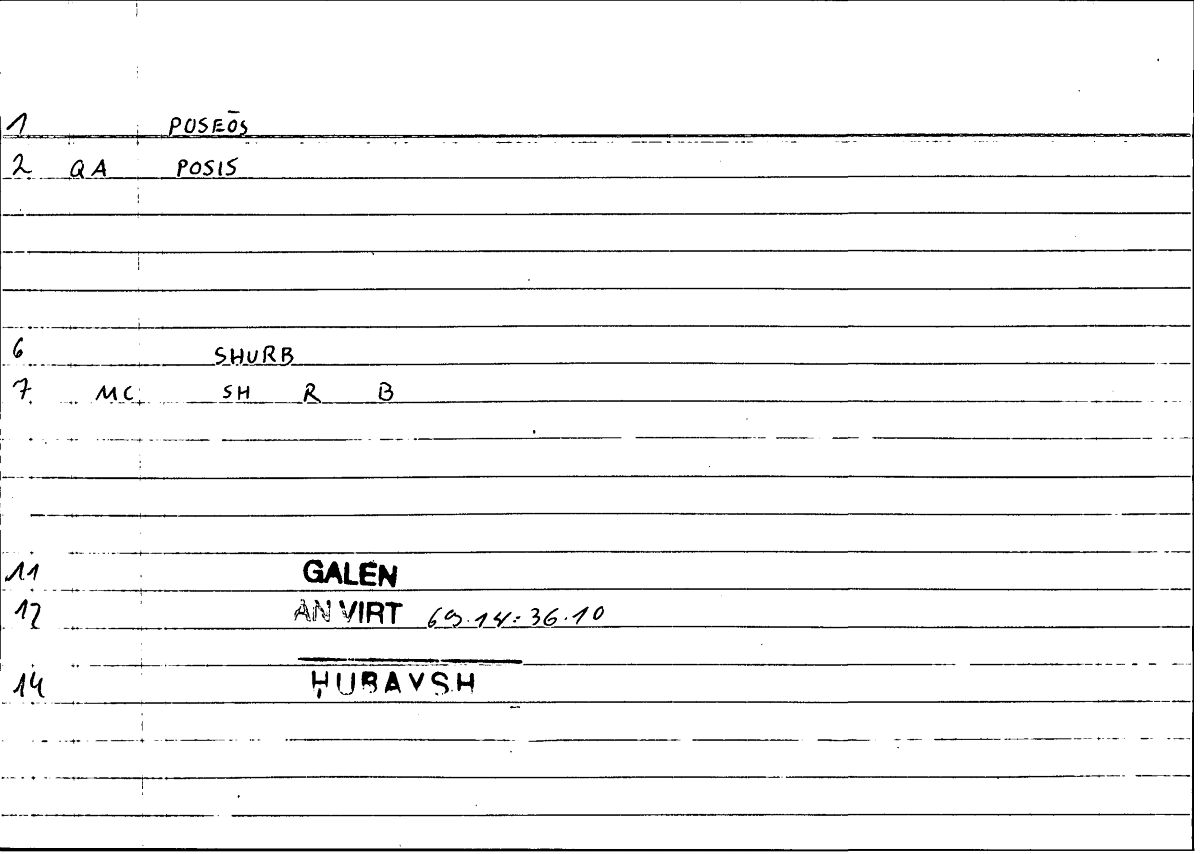 1 POSEŌS
2 QA POSIS
6 SHURB
7 MC SH R B
11 GALEN
12 AN VIRT 69.14:36.10
14 ḤUBAYSH